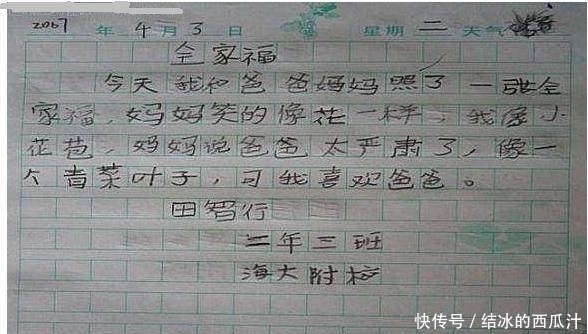 2007 年 4 月 3 日 星期 二 天气
全家福
今天我和爸爸妈妈照了一张全
家福,妈妈笑的像花一样,我像小
花苞,妈妈说爸爸太严肃了,像一
个青菜叶子,可我喜欢爸爸。
田智行
二年三班
海大附校
快传号/结冰的西瓜汁